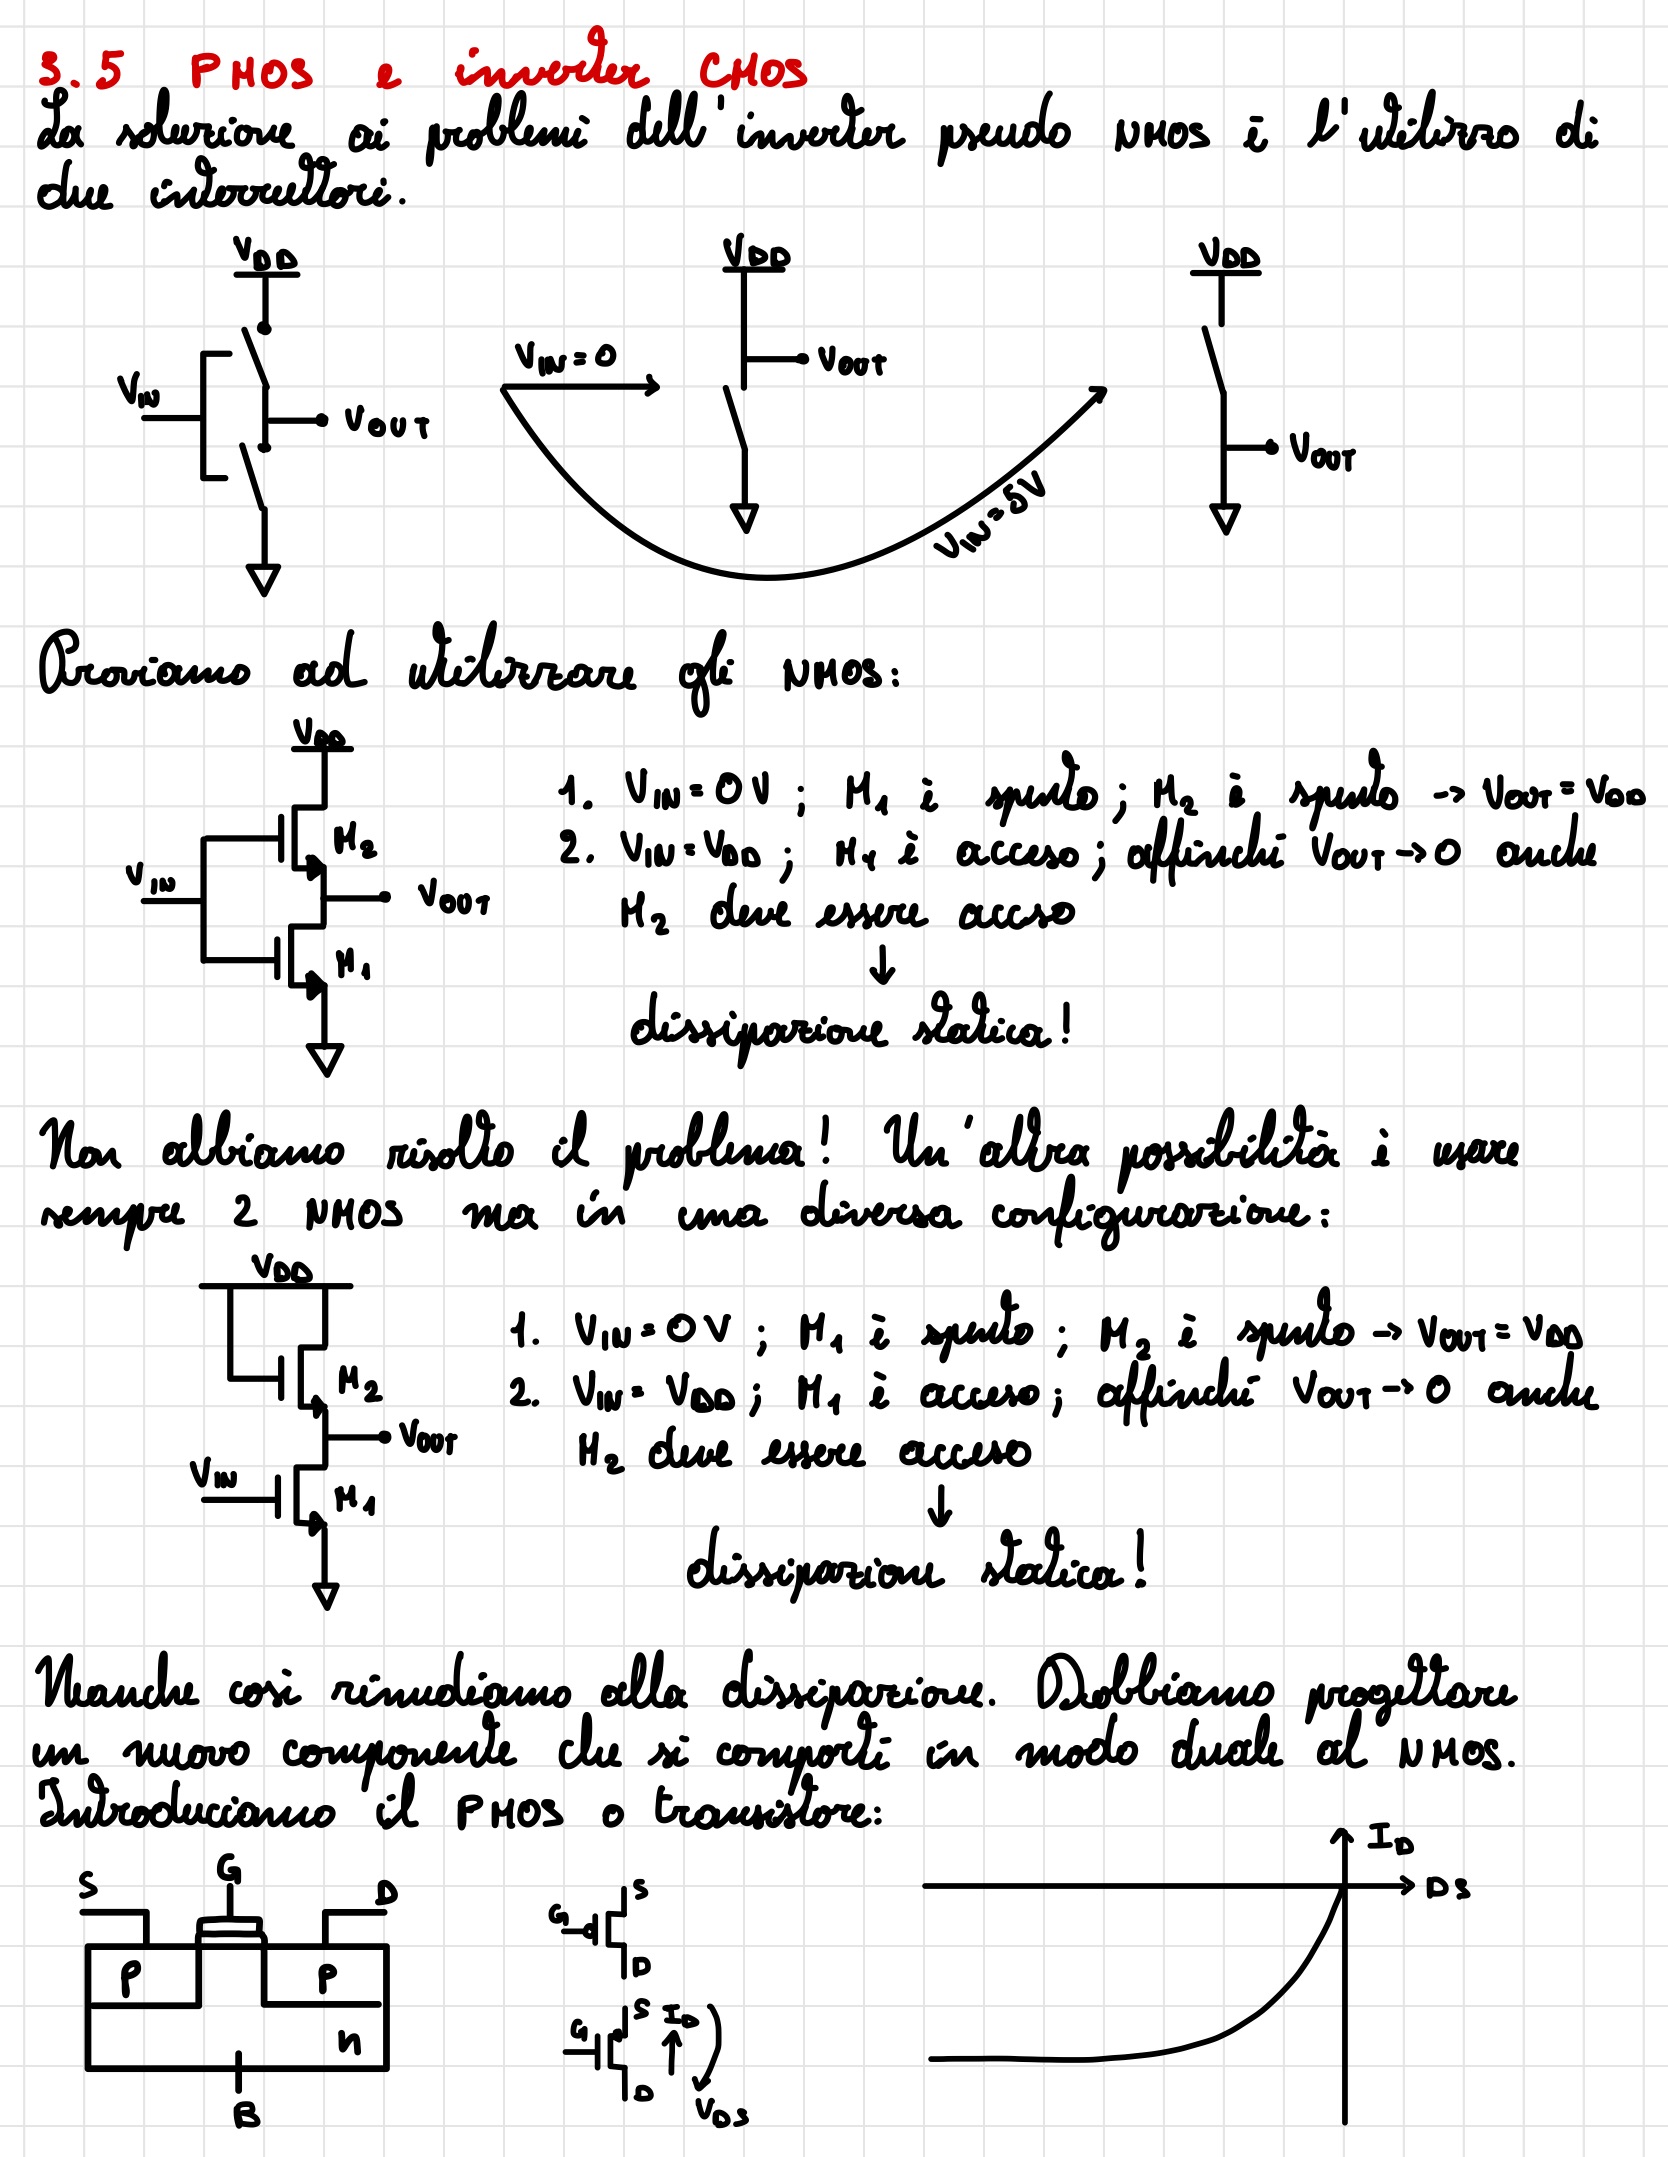 3.5 PMOS e inverter CMOS
La soluzione ai problemi dell'inverter pseudo NMOS è l'utilizzo di
due interruttori.
VDD
VIN
VOUT
VIN=0
VDD
VOUT
VIN=5V
VDD
VOUT
Proviamo ad utilizzare gli NMOS:
VDD
M2
VIN
VOUT
M1
1. VIN=0V ; M1 è spento ; M2 è spento → VOUT=VDD
2. VIN=VDD ; M1 è acceso ; affinché VOUT→0 anche
M2 deve essere accso
↓
dissipazione statica!
Non abbiamo risolto il problema! Un'altra possibilità è usare
sempre 2 NMOS ma in una diversa configurazione:
VDD
M2
VOUT
VIN
M1
1. VIN=0V ; M1 è spento ; M2 è spento → VOUT=VDD
2. VIN=VDD ; M1 è acceso ; affinché VOUT→0 anche
M2 deve essere acceso
↓
dissipazione statica!
Neanche così rimediamo alla dissipazione. Dobbiamo progettare
un nuovo componente che si comporti in modo duale al NMOS.
Introduciamo il PMOS o transistore:
S G D
P P
n
B
S
G
D
S
G
D
ID
VDS
ID
DS